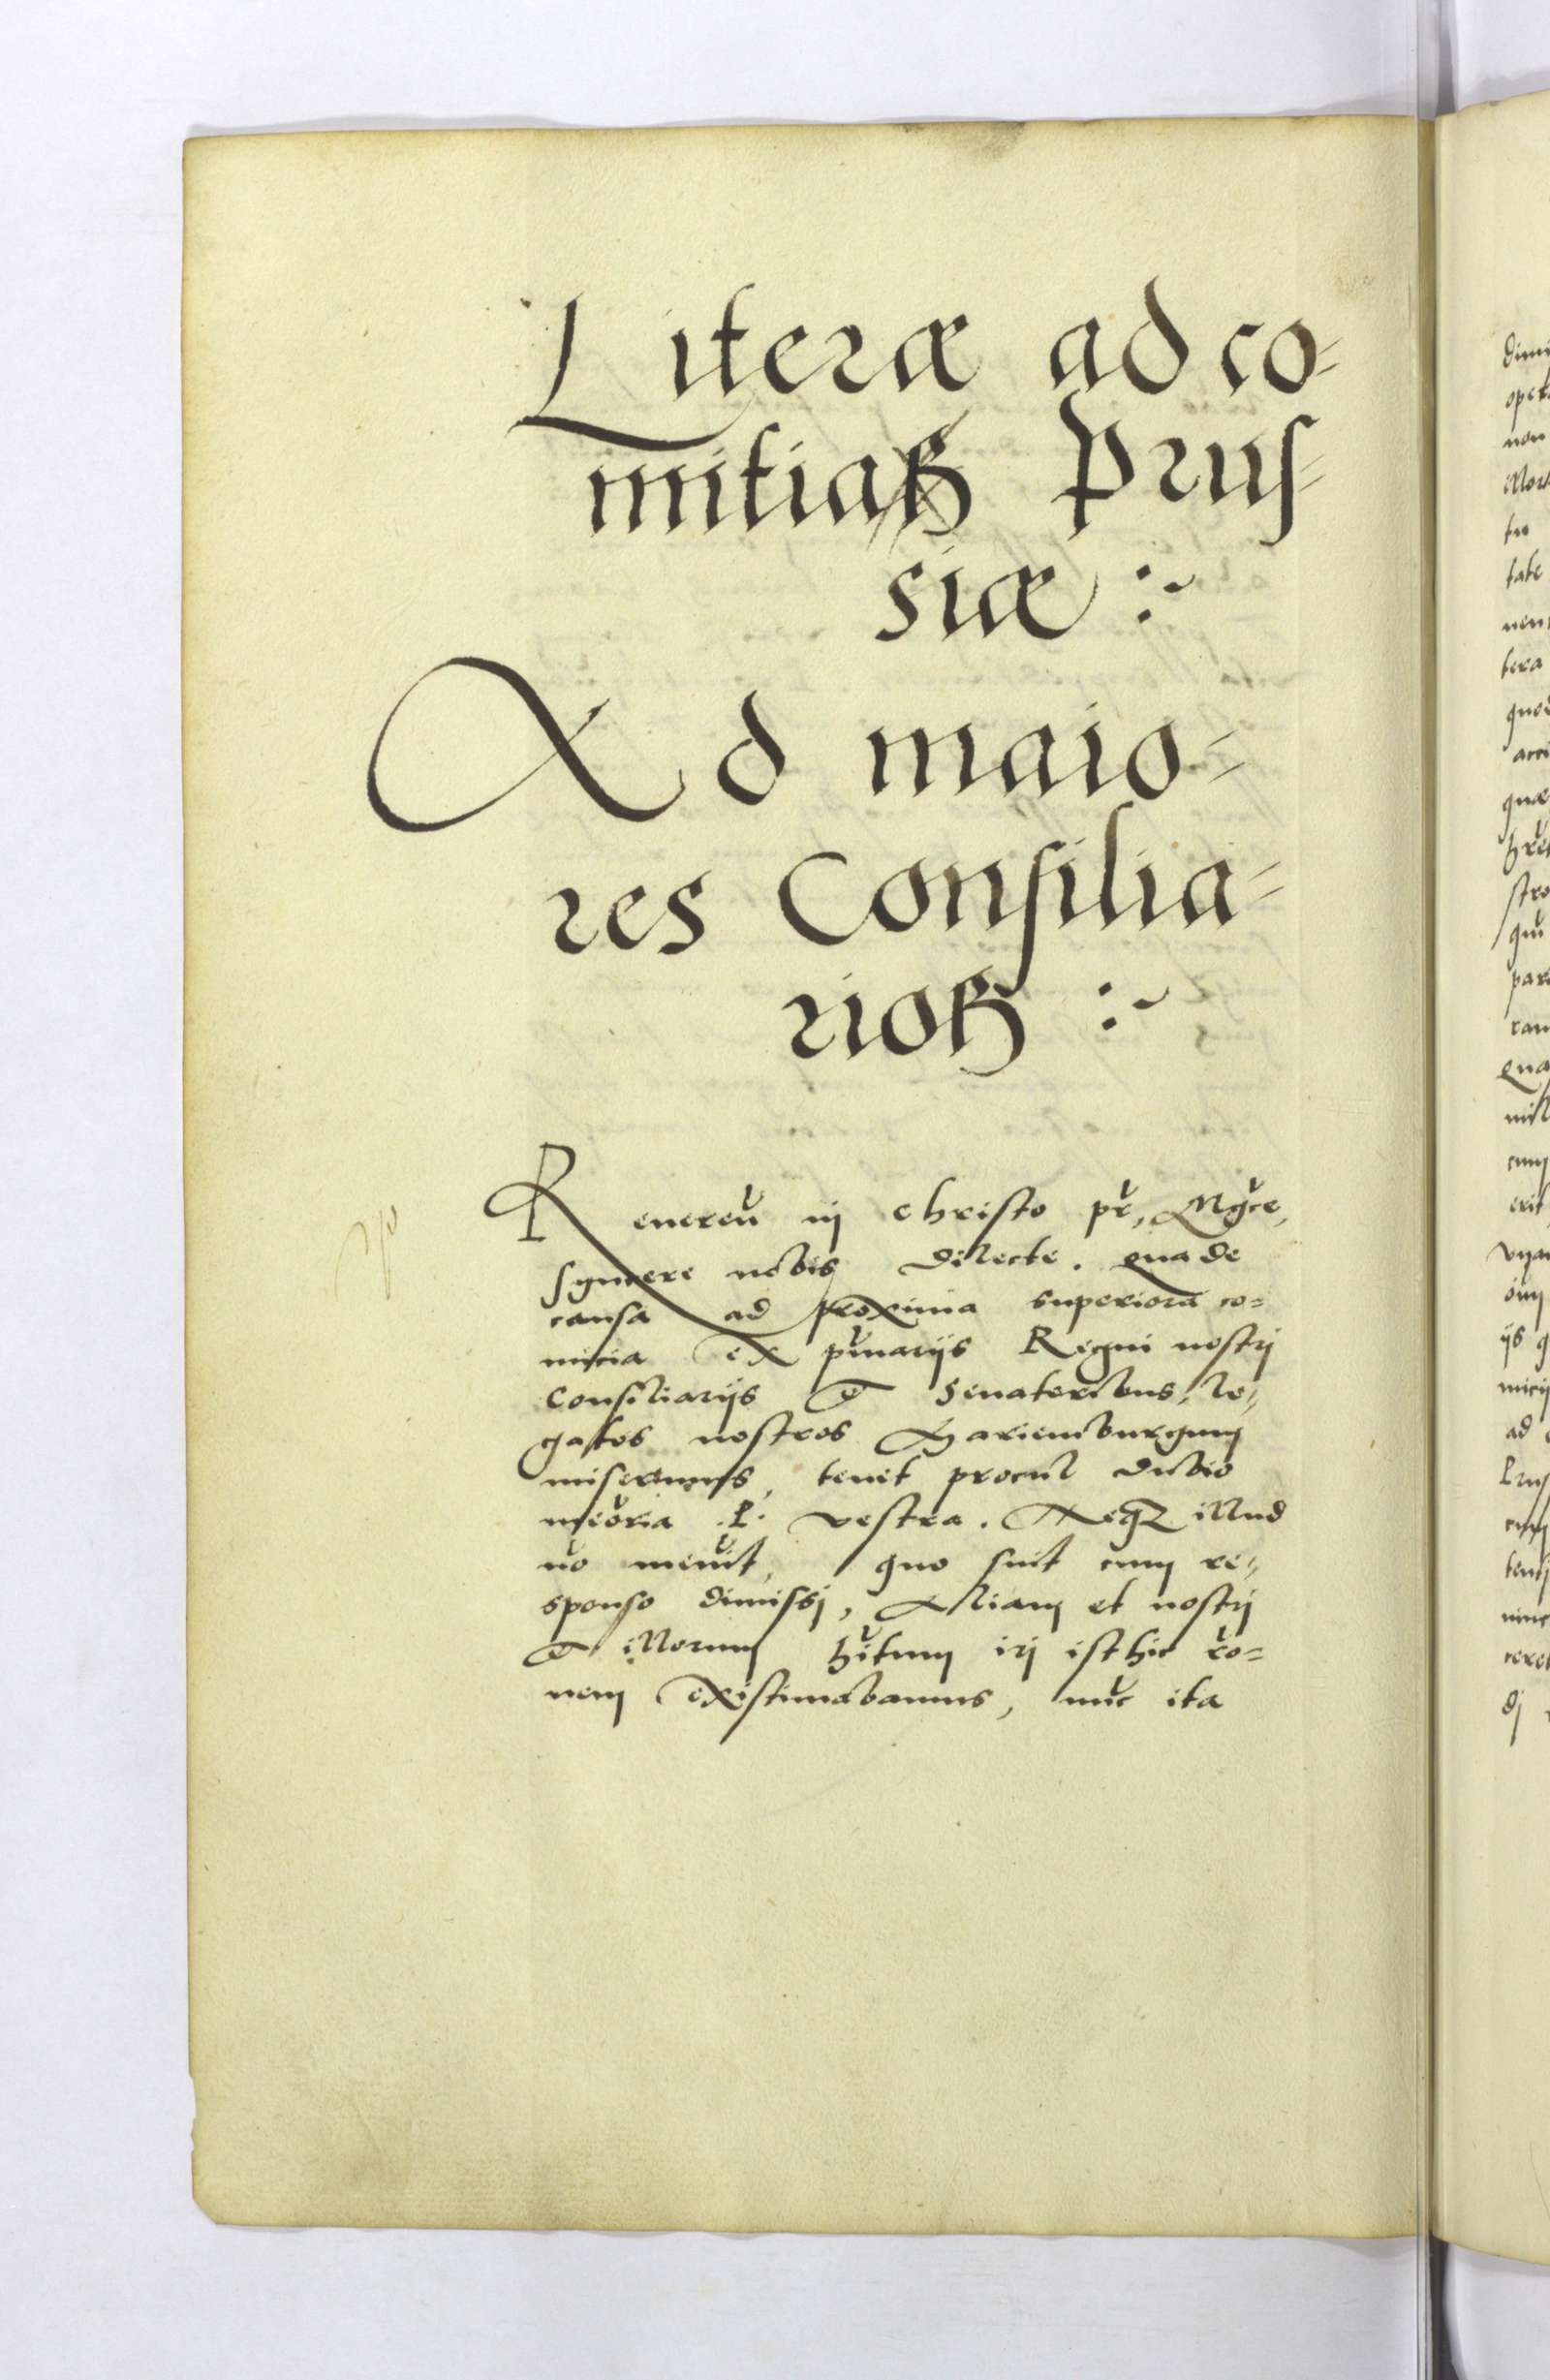 Literæ ad co-
mitiaꝝ Prus-
siæ :~
Ad maio-
res Consilia-
rioꝝ :~
Reuereñ in Christo pr̃, Mgc̃e,
syncere nobis dilecte. Qua de
causa ad proxima superiora co=
micia ex pr̃mariis Regni nostrj
Consiliarijs et Senatoribus, le=
gatos nostros Mariemburgum
miserimus, tenet procul dubio
mẽoria .P. vestra. Neqꝫ illud
ño meũit, quo sint cum re=
sponso dimissj, Aliam et nostrj
et illorum hĩtum irj isthic rõ=
nem existimabamus, nũc ita